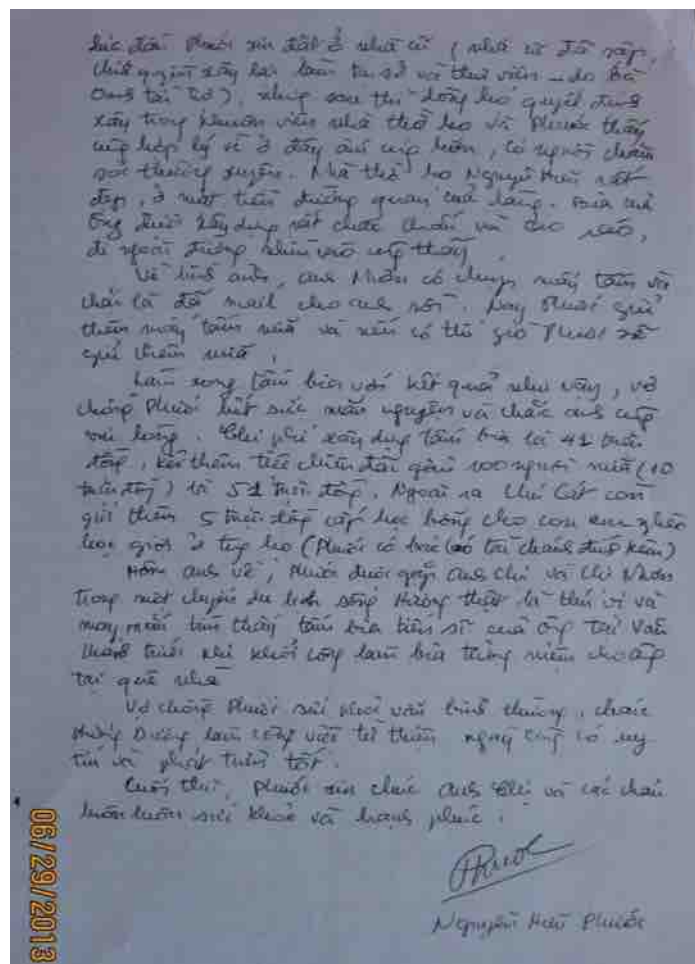 lúc đầu Phước xin đất ở nhà cũ (nhà cũ đã sập,
chính quyền xây lại làm trụ sở và thư viện - do Bà
Oanh tài trợ), nhưng sau thì dòng họ quyết định
xây trong khuôn viên nhà thờ họ và Phước thấy
cũng hợp lý vì ở đây ấm cúng hơn, có người chăm
sóc thường xuyên. Nhà thờ họ Nguyễn Hữu rất
đẹp, ở mặt tiền đường quan của làng. Bia của
Ông được xây dựng rất chắc chắn và cao ráo,
đi ngoài đường nhìn vào cũng thấy.
Về hình ảnh, anh Nhơn có chụp mấy tấm và
chắc là đã mail cho anh rồi. Nay Phước gửi
thêm mấy tấm nữa và nếu có thì giờ Phước sẽ
gửi thêm nữa.
Làm xong tấm bia với kết quả như vậy, vợ
chồng Phước hết sức mãn nguyện và chắc anh cũng
vui lòng. Chi phí xây dựng tấm bia là 41 triệu
đồng, kể thêm tiệc chiêu đãi gần 100 người nữa (10
triệu đồng) là 51 triệu đồng. Ngoài ra Chú Cát còn
gửi thêm 5 triệu đồng cấp học bổng cho con em nghèo
học giỏi ở tộc họ (Phước có báo cáo tài chánh đính kèm)
Hôm anh về, Phước được gặp anh chị và chị Nhơn
trong một chuyến du lịch sông Hương thật là thú vị và
may mắn tìm thấy tấm bia tiến sĩ của ông tại Văn
Thánh trước khi khởi công làm bia tưởng niệm cho ông
tại quê nhà
Vợ chồng Phước sức khoẻ vẫn bình thường, cháu
Dương làm công việc từ thiện ngày càng có uy
tín và phát triển tốt.
Cuối thư, Phước xin chúc anh chị và các cháu
luôn luôn sức khoẻ và hạnh phúc.
Phước
Nguyễn Hữu Phước
06/29/2013